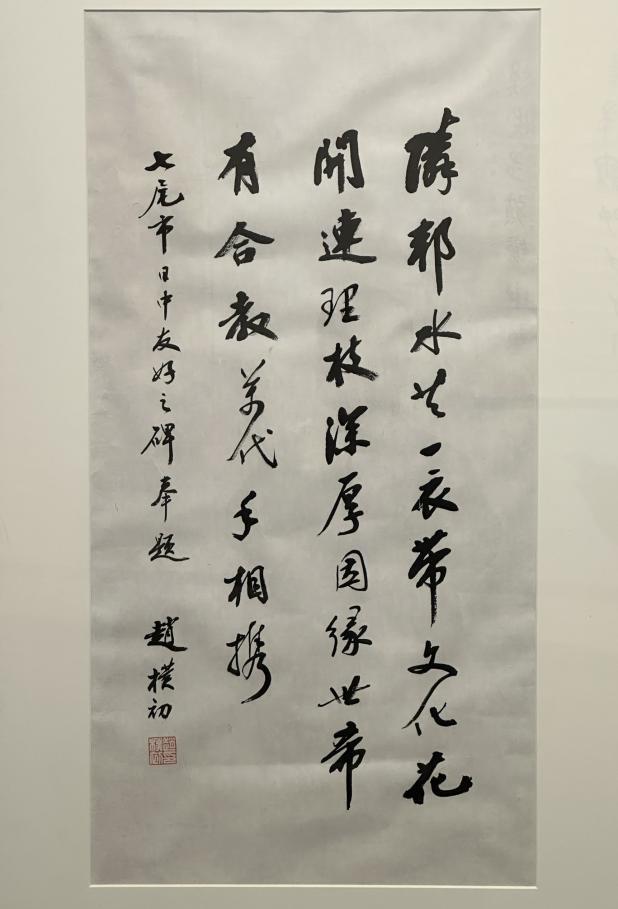 隣邦水共一衣帶文化花
開連理枝深厚因緣世希
有合教萬代手相携
七尾市日中友好之碑奉題
趙樸初